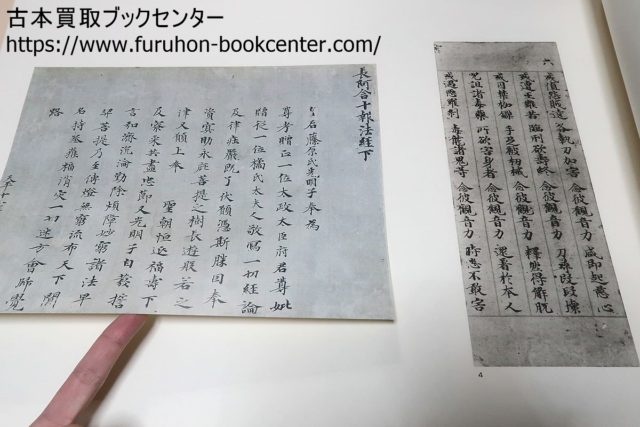 古本買取ブックセンター
https://www.furuhon-bookcenter.com/
長阿含十報法經下
皇后藤原氏光明子奉爲
尊考贈正一位太政太臣府君尊妣
贈從一位橘氏太夫人敬寫一切經論
及律莊嚴既了伏願憑斯勝因奉
資冥助永庇菩提之樹長遊般若之
津又願上奉 聖朝恒延福壽下
及寮采共盡忠節又光明子自發誓
言弘濟沉淪勤除煩障妙窮諸法早
契菩提乃至傳燈無窮流布天下聞
名持卷獲福消灾一切迷方會歸覺
路
天平十二
六
或值怨賊遶 各執刀加害 念彼觀音力 咸即起慈心
或遭王難苦 臨刑欲壽終 念彼觀音力 刀尋段段壞
或囚禁枷鎖 手足被杻械 念彼觀音力 釋然得解脫
呪詛諸毒藥 所欲害身者 念彼觀音力 還著於本人
或遇惡羅刹 毒龍諸鬼等 念彼觀音力 時悉不敢害
4